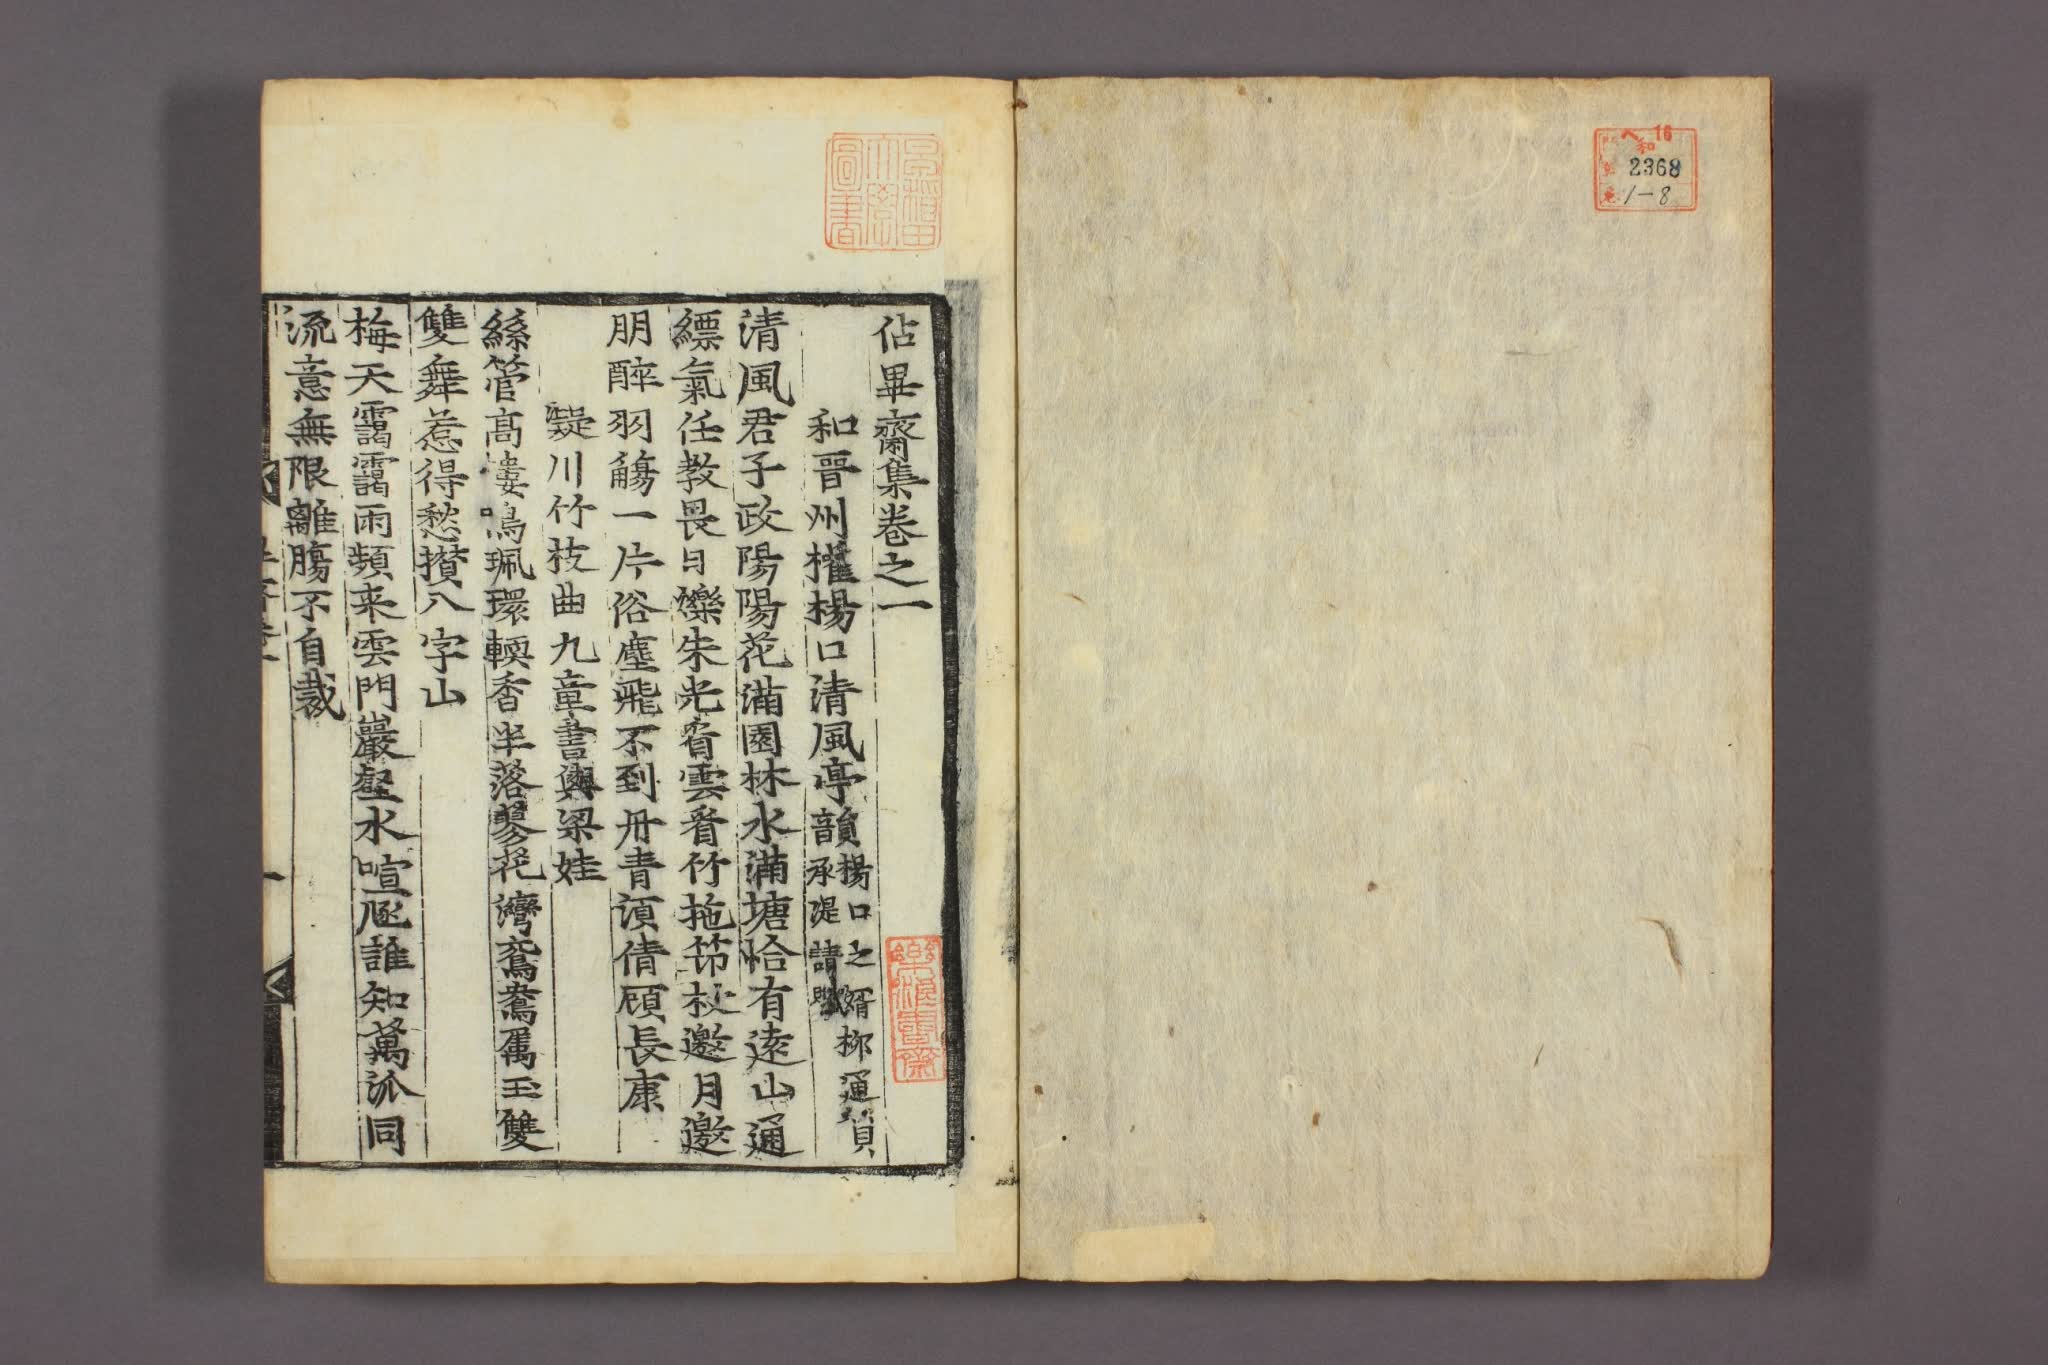 ヘ16
和
2368
1-8
早稲田
大學
圖書
佔畢齋集卷之一
和晋州權楊口清風亭韻 楊口之壻柳運
承湜請賦
清風君子政陽陽花滿園林水滿塘恰有遠山通
縹氣任教畏日爍朱光看雲看竹拖笻杖邀月邀
朋醉羽觴一片俗塵飛不到丹青須倩顧長康
凝川竹枝曲九章書與梁娃
絲管高樓鳴珮環輭香半落蓼花灣鴛鴦屬玉雙
雙舞惹得愁攢八字山
梅天靄靄雨頻来雲門巖壑水喧豗誰知萬泒同
流意無限離膓不自裁
一